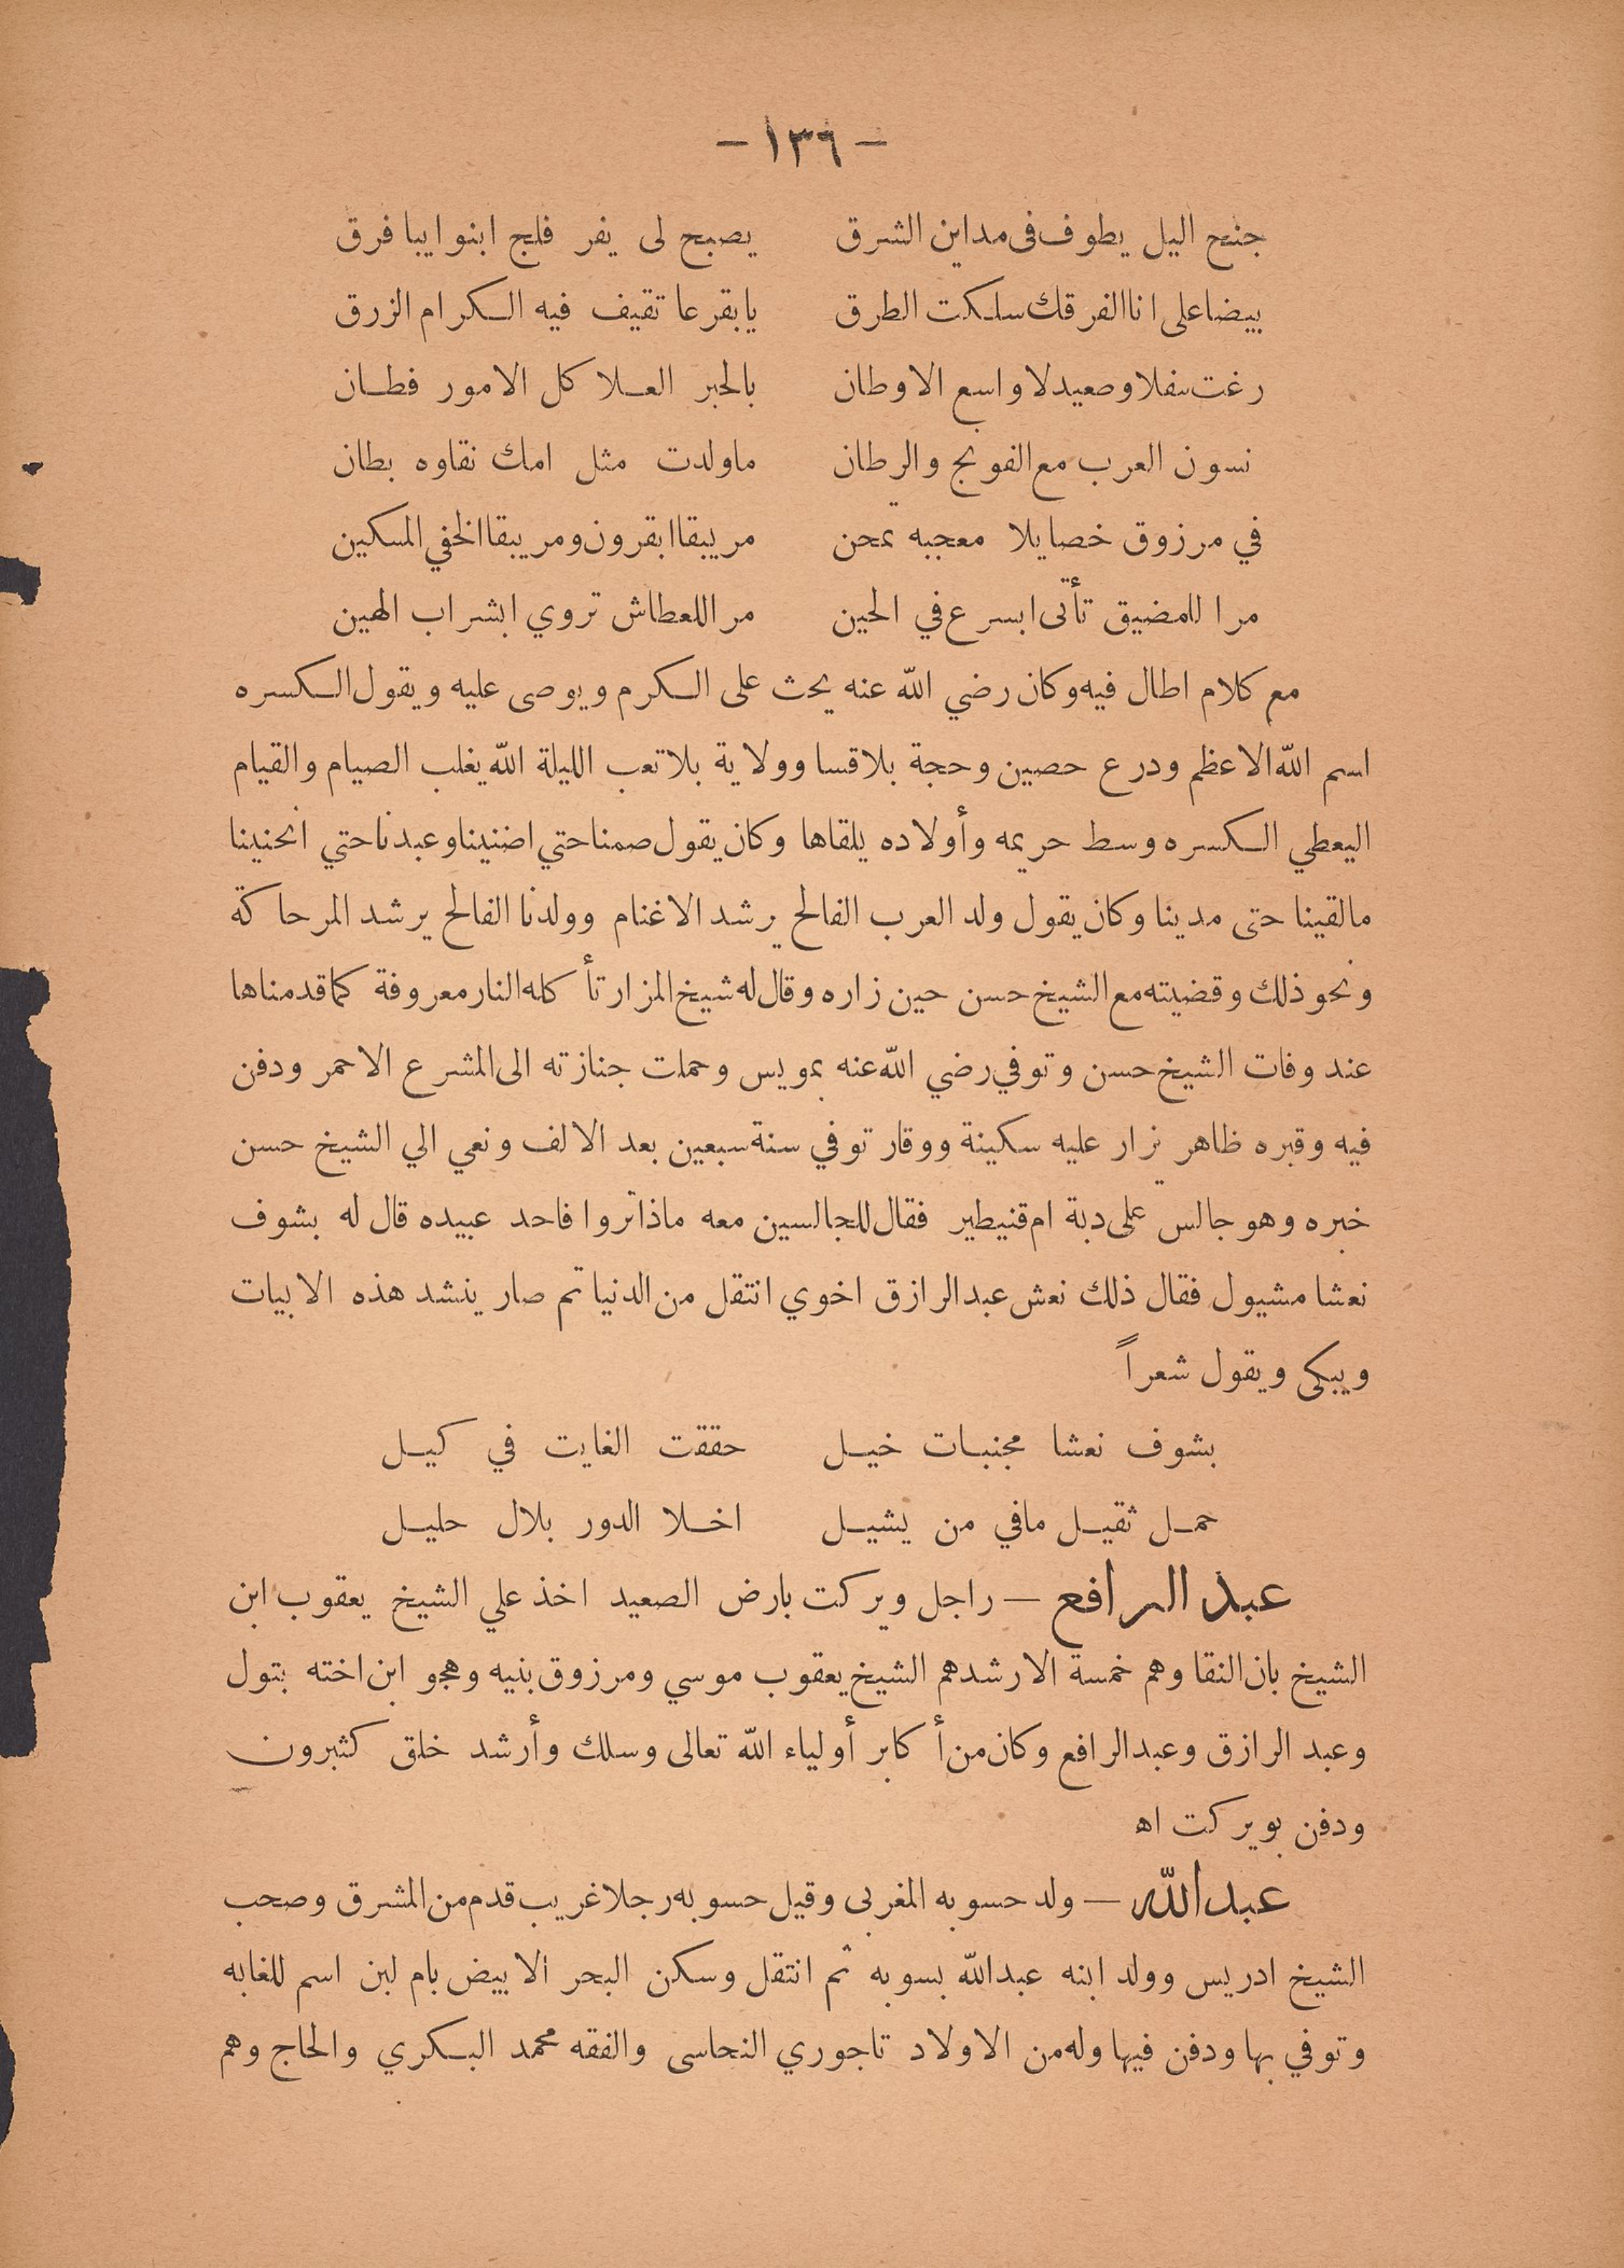 — ١٣٦ —
جنح اليل يطوف فى مداين الشرق يصبح لى يفر فلج ابنوا يبا فرق
بيضا على انا الفرقك سلكت الطرق يابقرعا تقيف فيه الكرام الزرق
رغت سفلا وصعيد لاواسع الاوطان بالخبر العلا كل الامور فطان
نسون العرب مع الفونج والرطان ماولدت مثل امك نقاوه بطان
في مرزوق خصايلا معجبه تمحن مر يبقا ابقرون ومر يبقا الخفي المسكين
مرا للمضيق تأتى ابسرع في الحين مر اللعطاش تروي ابشراب الهين
مع كلام اطال فيه وكان رضي الله عنه يحث على الكرم ويوصى عليه ويقول الكسره
اسم الله الاعظم ودرع حصين وحجة بلاقسا وولاية بلا تعب الليلة الله يغلب الصيام والقيام
اليعطي الكسره وسط حريمه وأولاده يلقاها وكان يقول صمنا حتي اضنينا وعبدنا حتي انحنينا
مالقينا حتى مدينا وكان يقول ولد العرب الفالح يرشد الاغنام وولدنا الفالح يرشد المرحاكة
ونحو ذلك وقضيته مع الشيخ حسن حين زاره وقال له شيخ المزار تأكله النار معروفة كما قدمناها
عند وفات الشيخ حسن وتوفي رضي الله عنه بمويس وحملت جنازته الى المشرع الاحمر ودفن
فيه وقبره ظاهر يزار عليه سكينة ووقار توفي سنة سبعين بعد الالف ونعي الي الشيخ حسن
خبره وهو جالس على دبة ام قنيطير فقال للجالسين معه ماذا تروا فاحد عبيده قال له بشوف
نعشا مشيول فقال ذلك نعش عبد الرازق اخوي انتقل من الدنيا ثم صار ينشد هذه الابيات
ويبكى ويقول شعراً
بشوف نعشا مجنبات خيل حققت الغايت في كيل
حمل ثقيل مافي من يشيل اخلا الدور بلال حليل
عبد الرافع — راجل ويركت بارض الصعيد اخذ علي الشيخ يعقوب ابن
الشيخ بان النقا وهم خمسة الارشدهم الشيخ يعقوب موسي ومرزوق بنيه وهجو ابن اخته بتول
وعبد الرازق وعبد الرافع وكان من أكابر أولياء الله تعالى وسلك وأرشد خلق كثيرون
ودفن بويركت اه
عبد الله — ولد حسوبه المغربى وقيل حسوبه رجلا غريب قدم من المشرق وصحب
الشيخ ادريس وولد ابنه عبد الله بسوبه ثم انتقل وسكن البحر الابيض بام لبن اسم للغابه
وتوفي بها ودفن فيها وله من الاولاد تاجوري النحاسى والفقه محمد البكري والحاج وهم